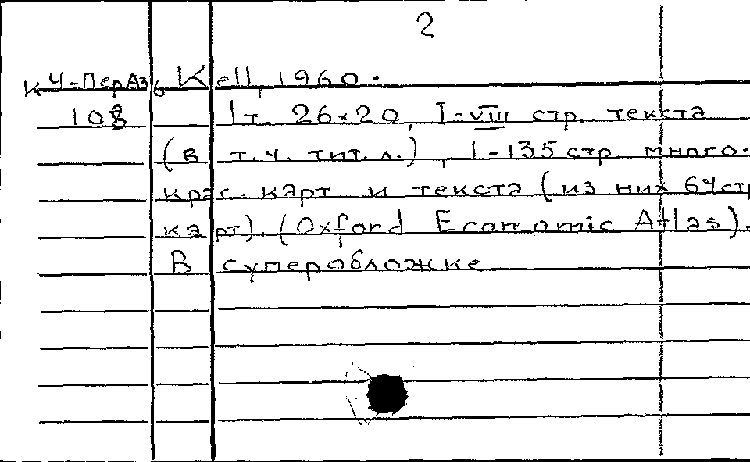 2
К 4-ПерАз6 Kell, 1960.
108 1 т. 26×20, I-VIII стр. текста
(в т.ч. тит. л.), 1-135 стр. много-
крас. карт и текста (из них 64 стр
карт). (Oxford Economic Atlas).
В суперобложке